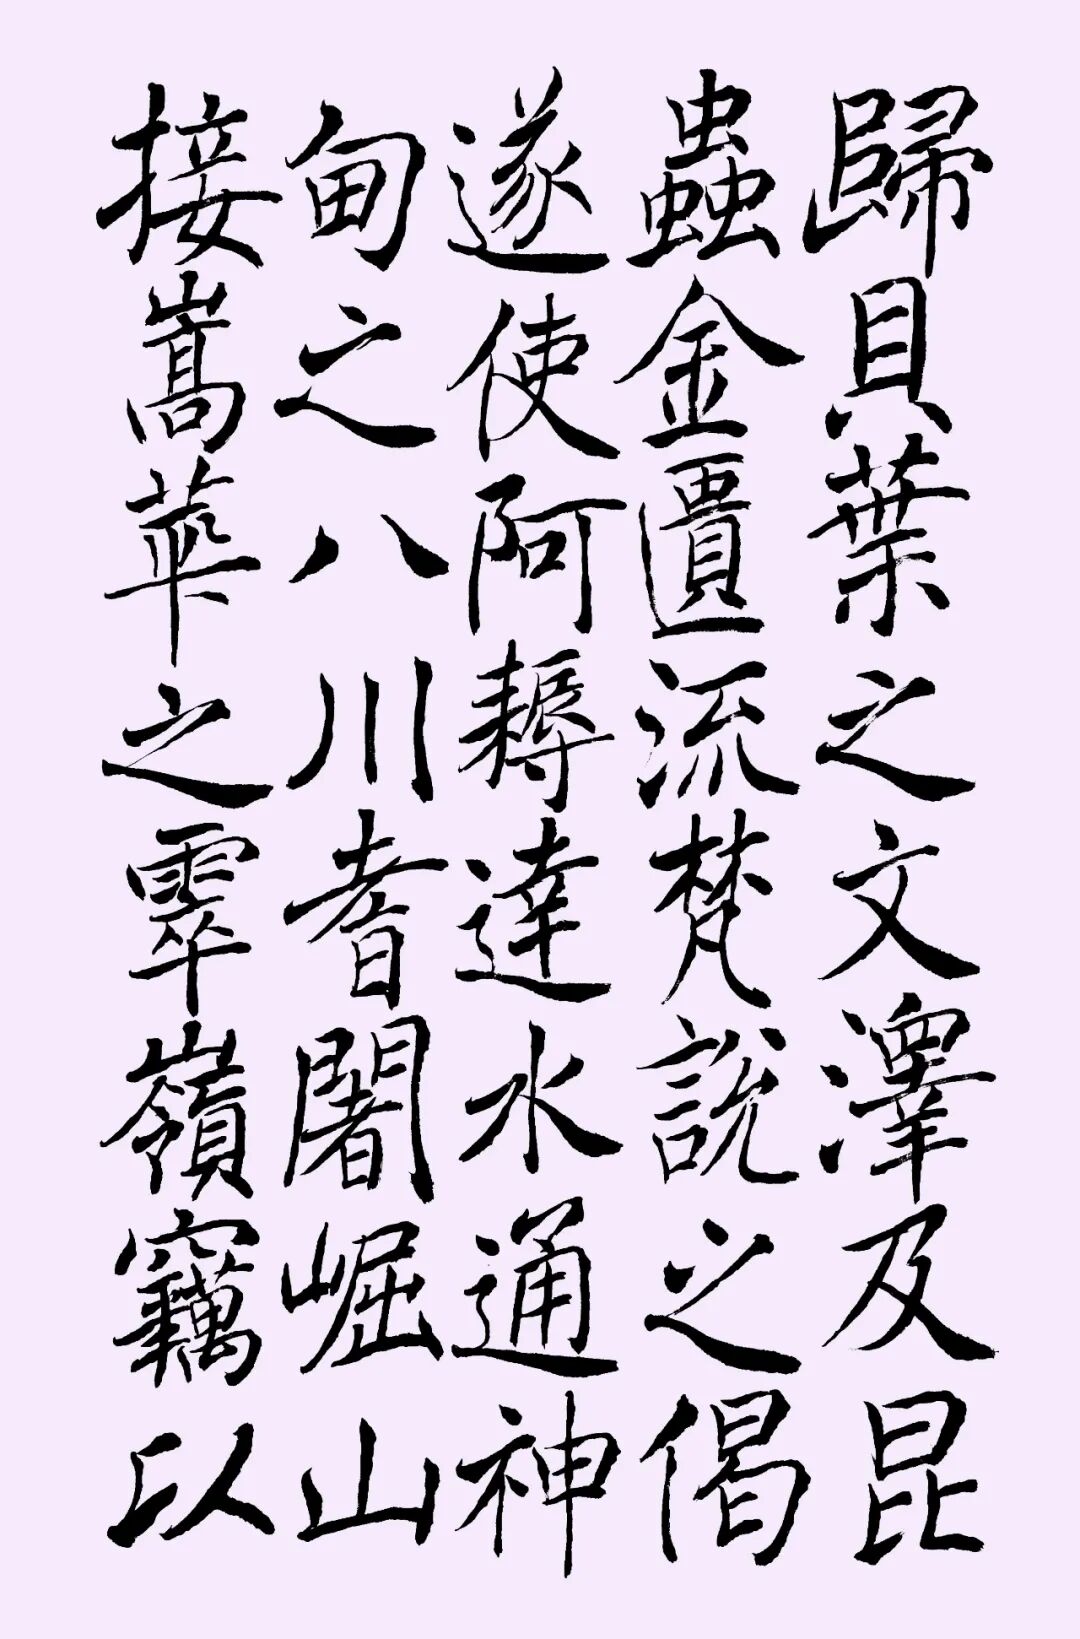 歸貝葉之文澤及昆
蟲金匱流梵說之偈
遂使阿耨達水通神
甸之八川耆闍崛山
接嵩華之翠嶺竊以